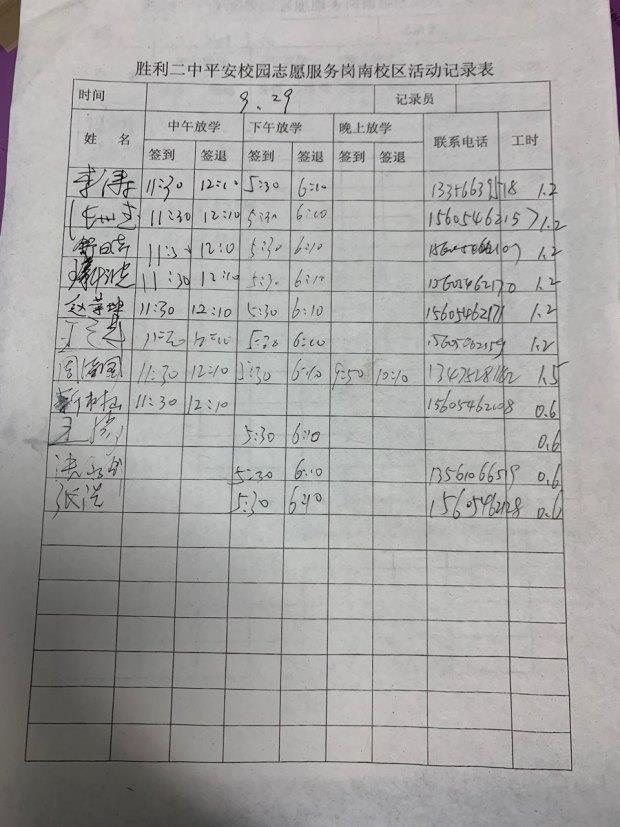 胜利二中平安校园志愿服务岗南校区活动记录表
时间 9.29 记录员
姓 名 中午放学 下午放学 晚上放学 联系电话 工时
签到 签退 签到 签退 签到 签退
李涛 11:30 12:10 5:30 6:10 1.2
11:30 12:10 5:30 6:10 15605462157 1.2
12:10 5:30 6:10 1.2
11:30 12:10 5:30 6:10 15605462170 1.2
赵荣坤 11:30 12:10 5:30 6:10 15605462171 1.2
5:30 6:10 15605462159 1.2
周海国 11:30 12:10 5:30 6:10 9:50 10:10 1.5
11:30 12:10 15605462108 0.6
5:30 6:10 0.6
5:30 6:10 0.6
张洪 5:30 6:10 15605462128 0.6